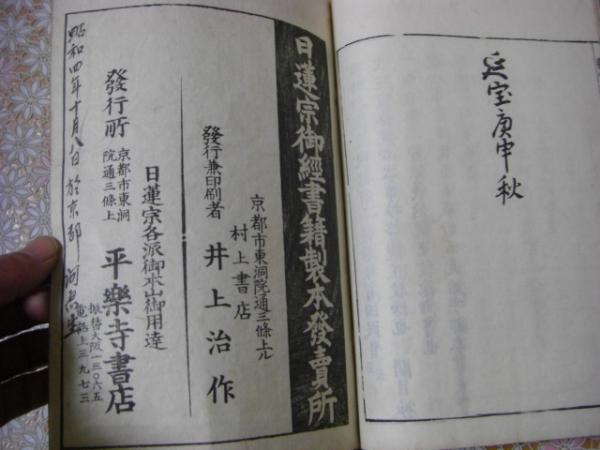 延宝庚申秋
日蓮宗御經書籍製本發賣所
京都市東洞院通三條上ル
村上書店
發行兼印刷者 井上治作
日蓮宗各派御本山御用達
發行所 京都市東洞院通三條上 平樂寺書店
振替大阪一三〇六五
電話上三九七三
昭和四年十月八日於京都